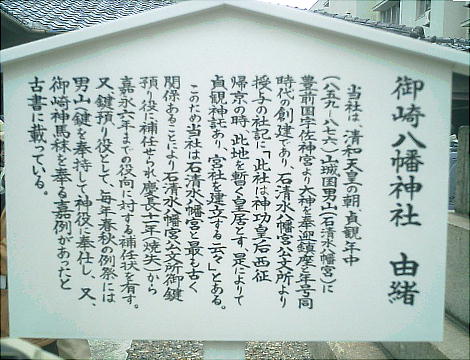 御崎八幡神社 由緒
当社は、清和天皇の朝貞観年中
(八五九~八七六)山城国男山(石清水八幡宮)に
豊前国宇佐神宮より大神を奉迎鎮座と年号同
時代の創建であり、石清水八幡宮公文所より
授与の社記に「此社は神功皇后西征
帰京の時、此地を暫く皇居とす、是によりて
貞観神託あり、宮社を建立する云々」とある。
このため当社は石清水八幡宮と最も古く
関係あることにより石清水八幡宮公文所御鍵
預り役に補任せられ慶長十一年(焼失)から
嘉永六年までの役向に対する補任状を有す。
又鍵預り役として、毎年春秋の例祭には
男山鍵を奉持して神役に奉仕し、又、
御崎神馬秣を奉る嘉例があったと
古書に載っている。